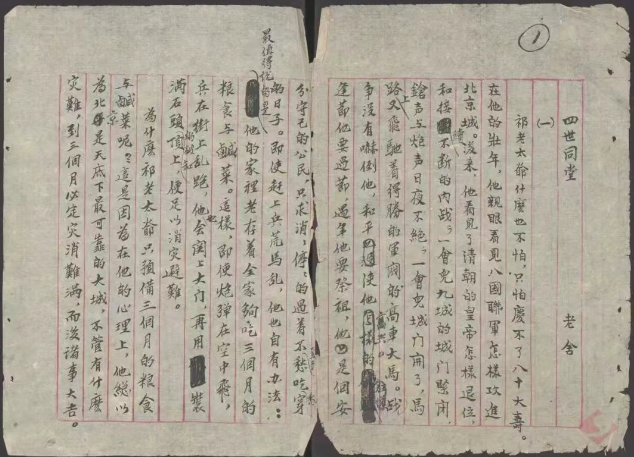 1
四世同堂　老舍
(一)
祁老太爺什麼也不怕,只怕慶不了八十大壽。
在他的壯年,他親眼看見八國聯軍怎樣攻進
北京城。後來,他看見了清朝的皇帝怎樣退位,
和接續不斷的內戰。一會兒九城的城門緊閉,
鎗声与炮声日夜不絕。一會兒城门開了,馬
路上又飛馳着得勝的軍閥的高車大馬。战
爭沒有嚇倒他,和平使他
逢節他要過節,過年他要祭祖,他是個安
分守己的公民,只求消消停停的過着不愁吃穿
的日子。即使赶上兵荒馬乱,他也自有办法:
最值得說的是
他的家裡老存着全家夠吃三個月的
粮食与鹹菜。這樣,即使炮彈在空中飛,
兵在街上乱跑,他也会関上大门,再用裝
滿石頭的破缸頂上,便足以消災避難。
為什麼祁老太爺只預備三個月的粮食
与鹹菜呢?這是因為在他的心理上,他總以
為北京是天底下最可靠的大城,不管有什麼
災難,到三個月必定災消難滿,而後諸事大吉。